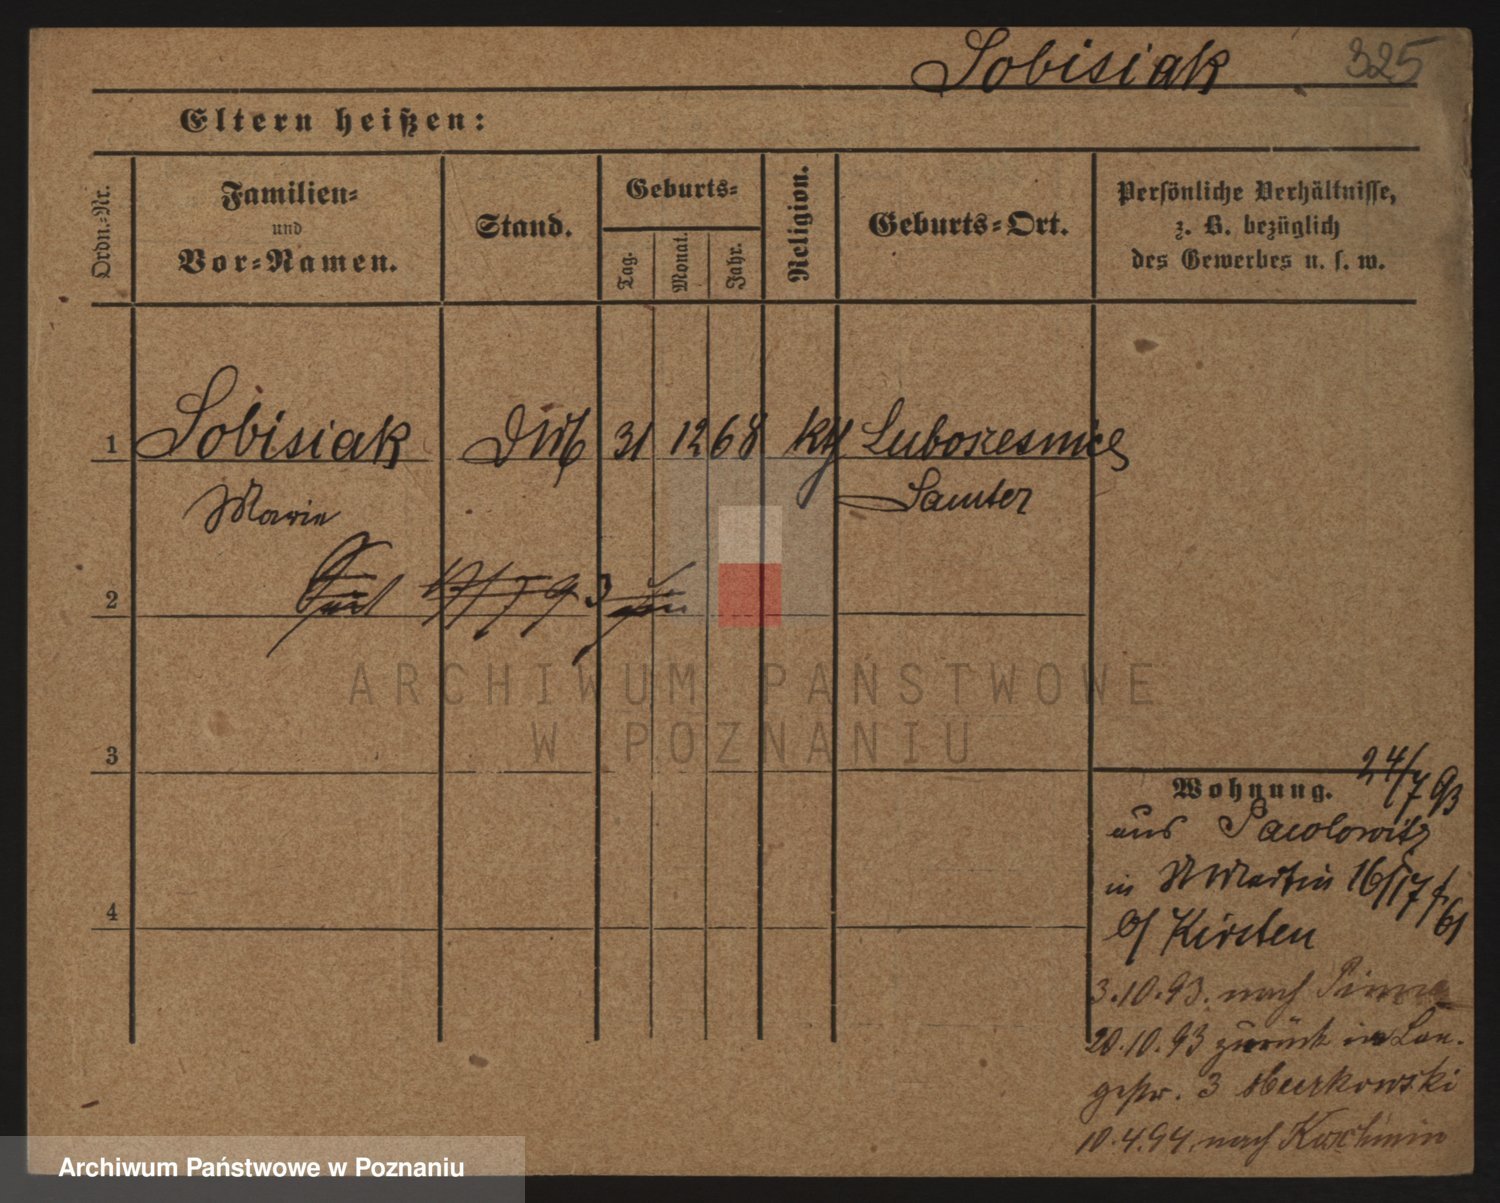 Sobisiak 325
Eltern heißen:
Ordn.-Nr.
Familien-
und
Vor-Namen.
Stand.
Geburts-
Tag.
Monat.
Jahr.
Religion.
Geburts-Ort.
Persönliche Verhältnisse,
z. B. bezüglich
des Gewerbes u. s. w.
1 Sobisiak 31 12 68 kth
Marie Samter
2
3
4
ARCHIWUM PAŃSTWOWE
W POZNANIU
Wohnung. 24/7 93
aus
in St Martin 16/17
b/ Kirsten
3.10.93. nach Pinne
20.10.93 zurück in Lan-
gestr. 3
10.4.94. nach Koschmin
Archiwum Państwowe w Poznaniu